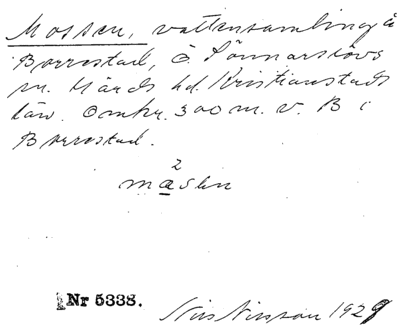 Mossen, vattensamling å
Borrestad, Ö. Sönnarslövs
sn. Gärds hd. Kristianstads
län. Omkr. 300 m. v. B i
Borrestad.
2
masen
Nr 5338.
Nils Nilsson 1929